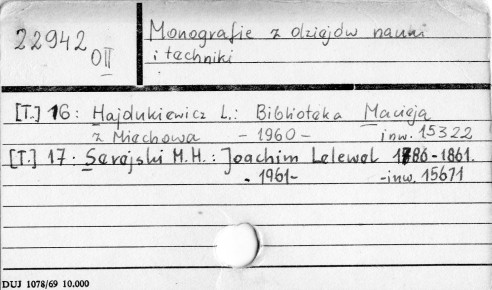 22942
OII
Monografie z dziejów nauki
i techniki
[T.] 16: Hajdukiewicz L.: Biblioteka Macieja
z Miechowa - 1960 - inw. 15322
[T.] 17. Serejski M.H.: Joachim Lelewel 1786-1861.
- 1961 - -inw. 15671
DUJ 1078/69 10.000